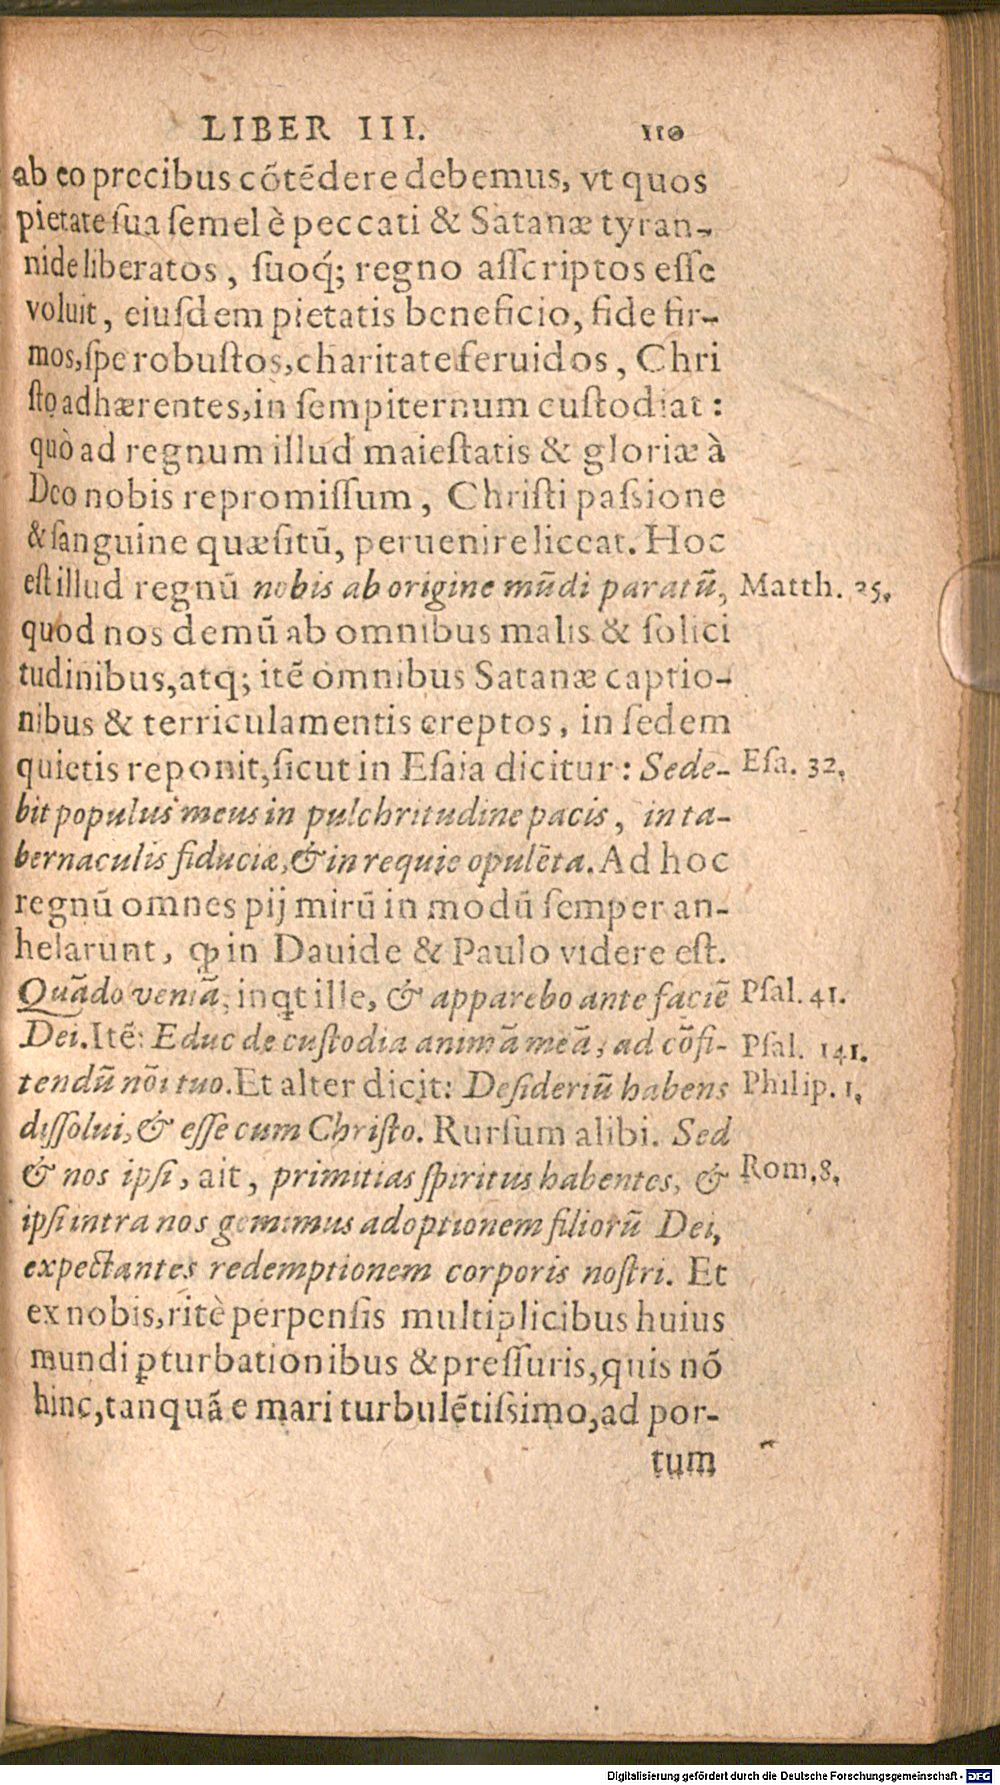 LIBER III. 110
ab eo precibus cōtēdere debemus, vt quos
pietate ſua ſemel è peccati & Satanæ tyran-
nide liberatos, ſuoq́; regno aſſcriptos eſſe
voluit, eiuſdem pietatis beneficio, fide fir-
mos, ſpe robuſtos, charitate feruidos, Chri
ſto adhærentes, in ſempiternum cuſtodiat:
quò ad regnum illud maieſtatis & gloriæ à
Deo nobis repromiſſum, Chriſti paſsione
& ſanguine quæſitū, peruenire liceat. Hoc
eſt illud regnū nobis ab origine mūdi paratū, Matth. 25.
quod nos demū ab omnibus malis & ſolici
tudinibus, atq; itē omnibus Satanæ captio-
nibus & terriculamentis ereptos, in ſedem
quietis reponit, ſicut in Eſaia dicitur: Sede- Eſa. 32.
bit populus meus in pulchritudine pacis, in ta-
bernaculis fiduciæ, & in requie opulēta. Ad hoc
regnū omnes pij mirū in modū ſemper an-
helarunt, ꝙ in Dauide & Paulo videre eſt.
Quādo veniā, inqt ille, & apparebo ante faciē Pſal. 41.
Dei. Itē: Educ de cuſtodia animā meā, ad cōfi- Pſal. 141.
tendū nōi tuo. Et alter dicit: Deſideriū habens Philip. 1.
diſſolui, & eſſe cum Chriſto. Rurſum alibi. Sed
& nos ipſi, ait, primitias ſpiritus habentes, & Rom. 8.
ipſi intra nos gemimus adoptionem filiorū Dei,
expectantes redemptionem corporis noſtri. Et
ex nobis, ritè perpenſis multiplicibus huius
mundi ꝑturbationibus & preſſuris, quis nō
hinc, tanquā e mari turbulētiſsimo, ad por-
tum
Digitalisierung gefördert durch die Deutsche Forschungsgemeinschaft - DFG